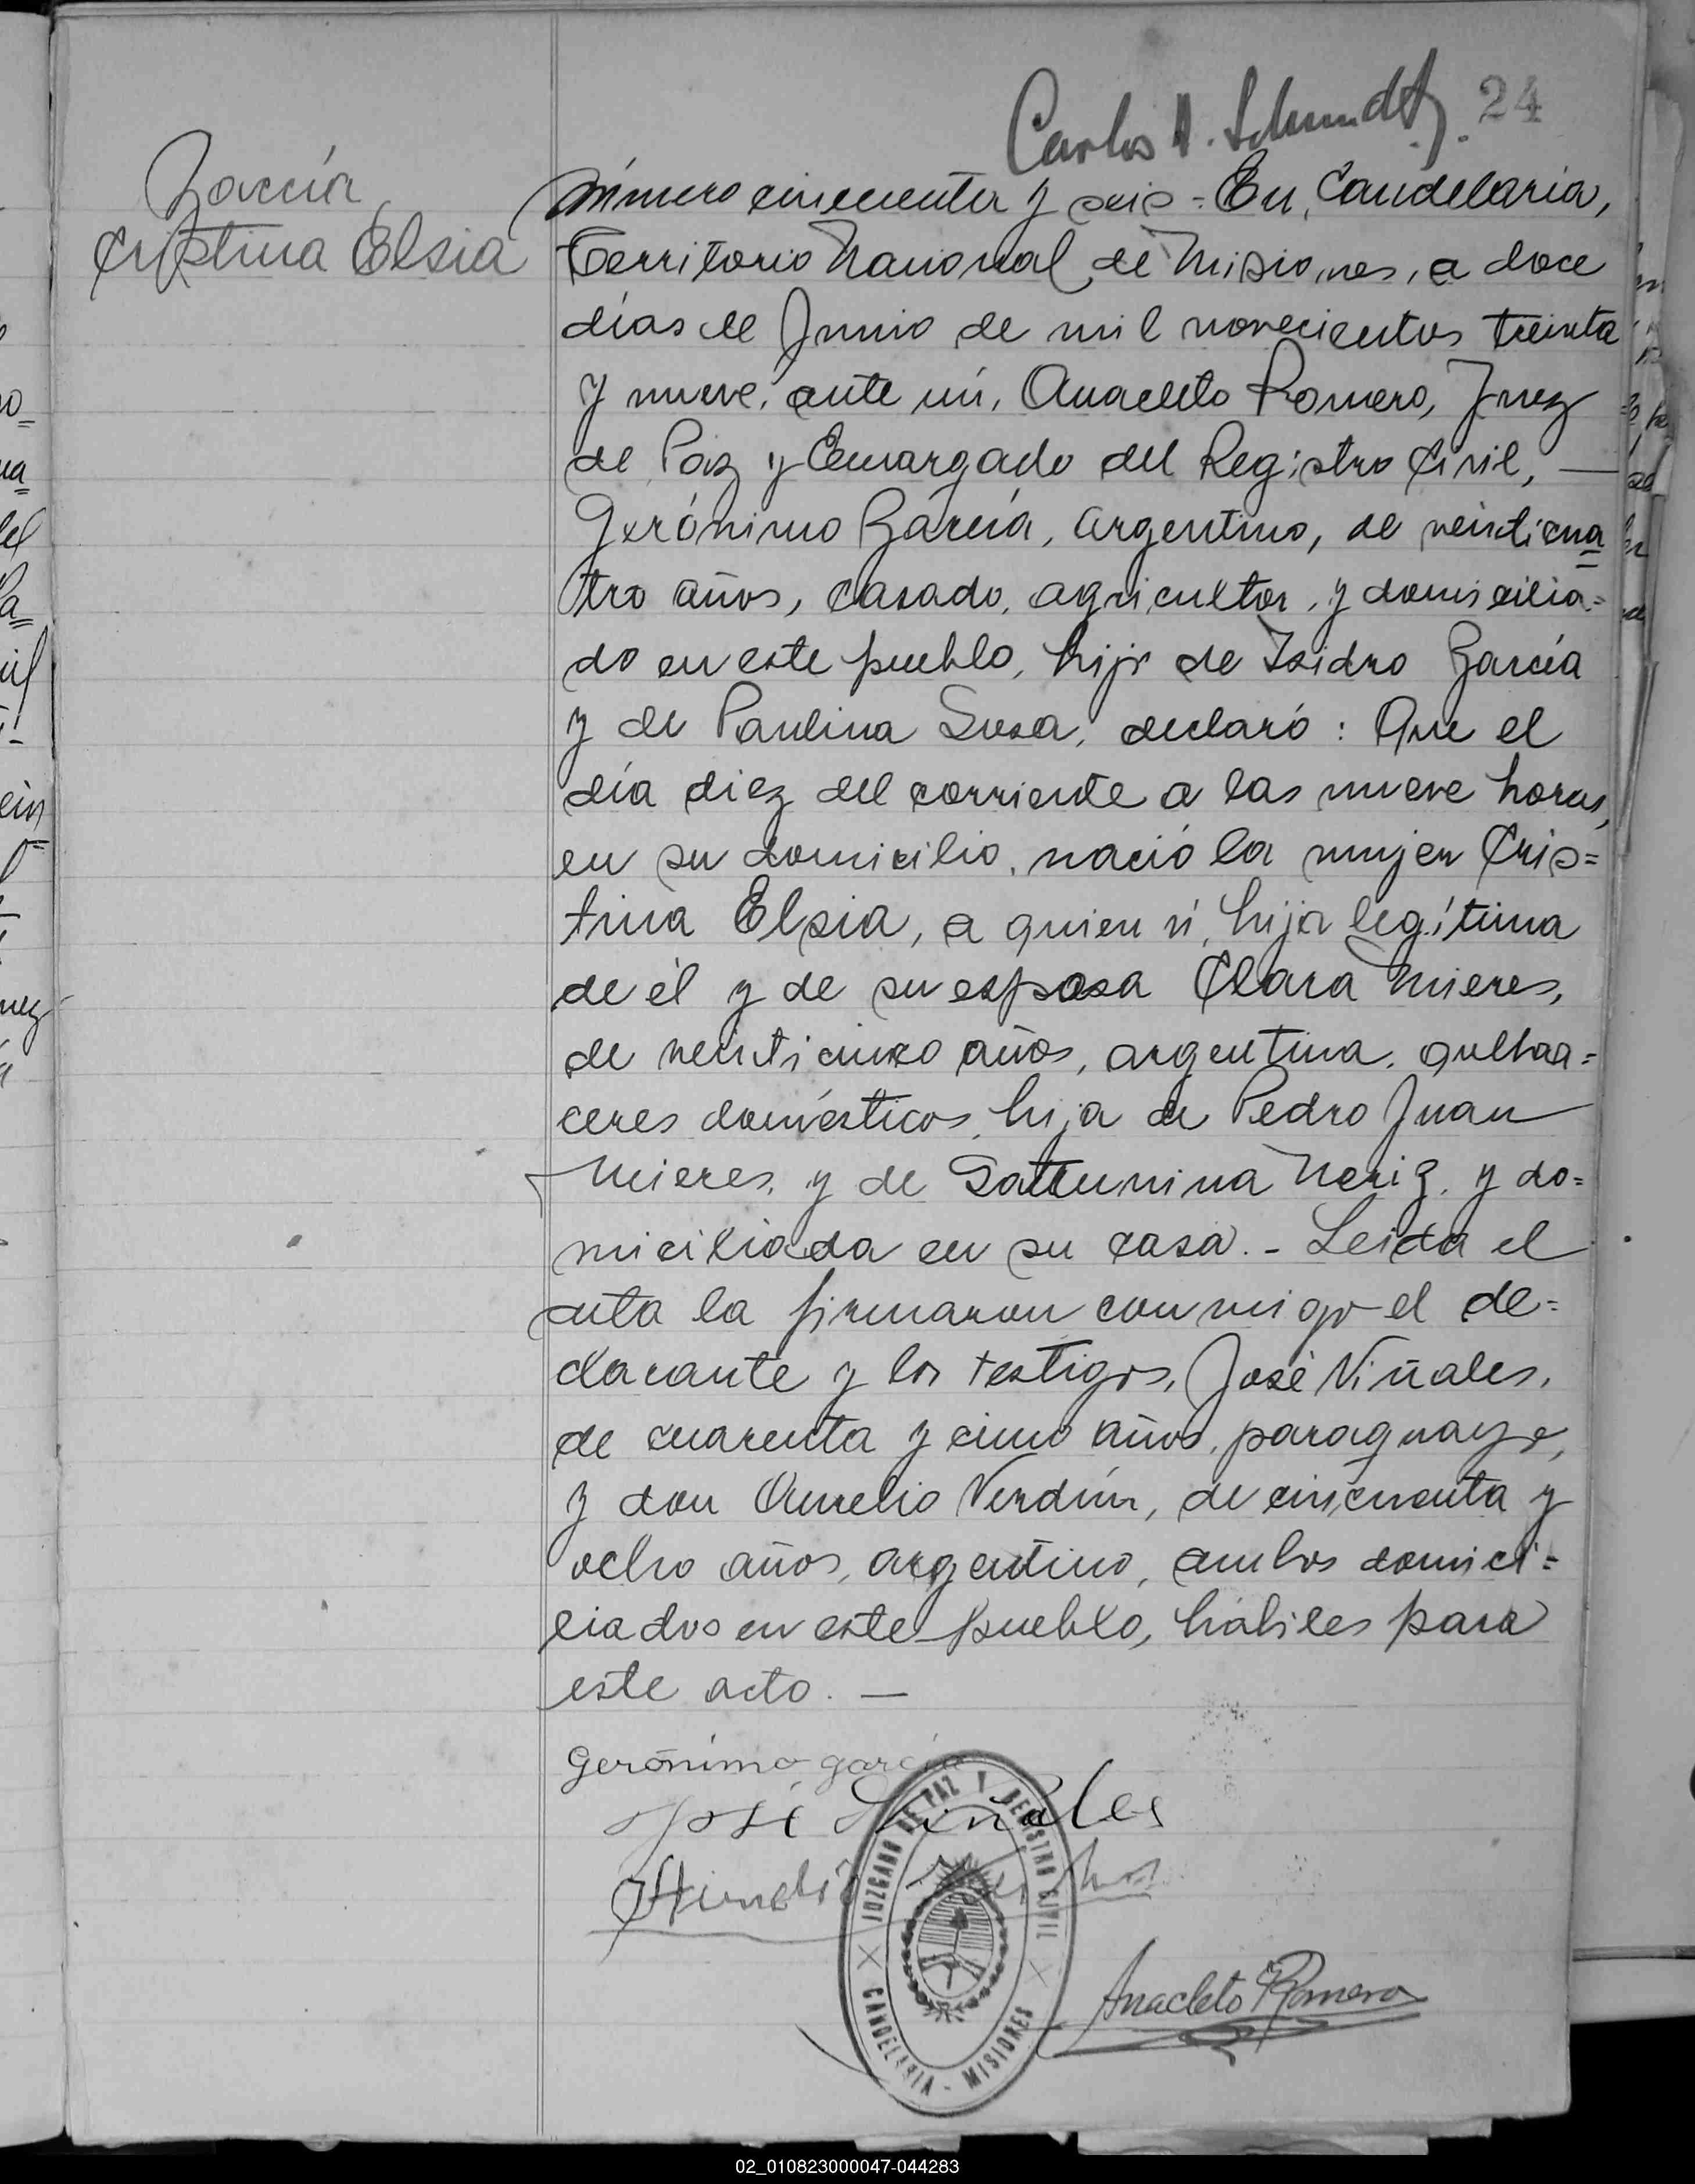 Carlos A. Schmidt 24
García
Cristina Elsia
Número cincuenta y seis = En Candelaria,
Territorio Nacional de Misiones, a doce
días de Junio de mil novecientos treinta
y nueve, ante mí, Anacleto Romero, Juez
de Paz y Encargado del Registro Civil, —
Gerónimo García, argentino, de veinticua=
tro años, casado, agricultor, y domicilia=
do en este pueblo, hijo de Isidro García
y de Paulina Sosa, declaró: Que el
día diez del corriente a las nueve horas,
en su domicilio, nació la mujer Cris=
tina Elsia, a quien ví, hija legítima
de él y de su esposa Clara Mieres,
de veinticinco años, argentina, quehaa=
ceres domésticos, hija de Pedro Juan
Mieres, y de Satturnina Neriz, y do=
miciliada en su casa. - Leida el
acta la firmaron conmigo el de=
clarante y los testigos, José Viñales,
de cuarenta y cinco años, paraguayo,
y don Aurelio Verdún, de cincuenta y
ocho años, argentino, ambos domici=
liados en este pueblo, hábiles para
este acto. —
Gerónimo garcía
José Viñales
Aurelio
JUZGADO DE PAZ Y REGISTRO CIVIL
CANDELARIA - MISIONES
Anacleto Romero
02_010823000047-044283